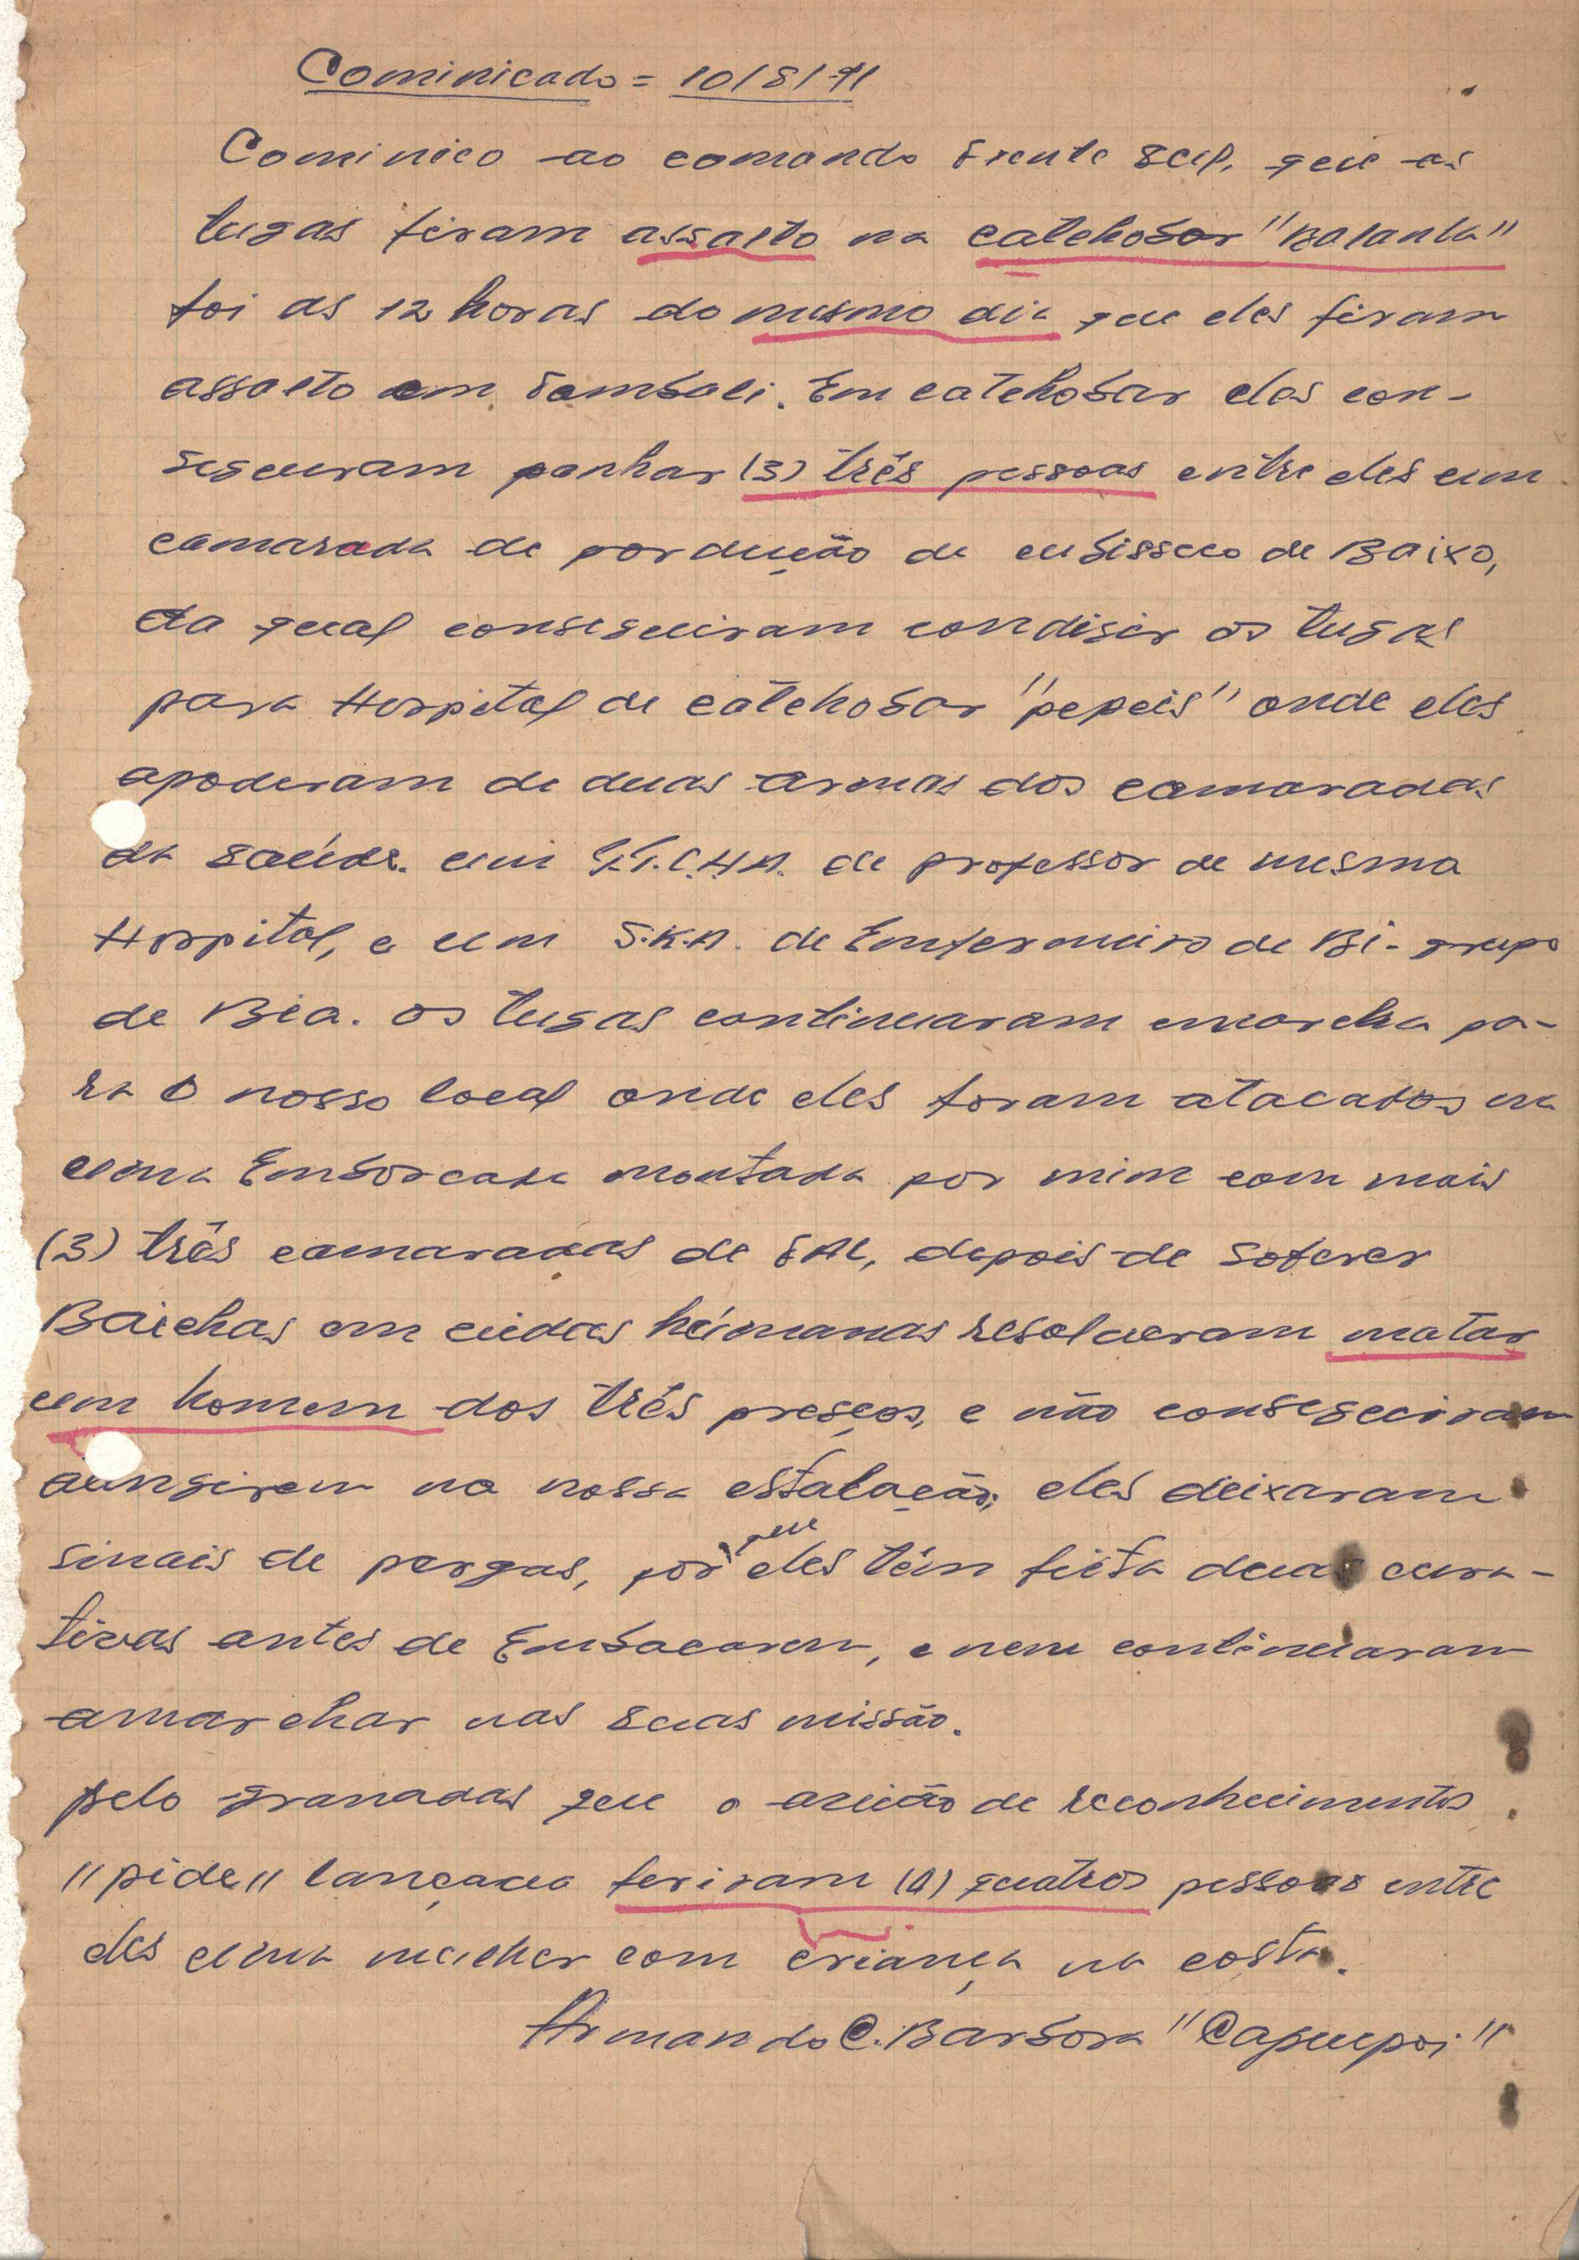 Cominicado = 10/8/71
Cominico ao comando Frente Sul, que os
tugas firam assalto na catchobar "Balanta"
foi as 12 horas do mesmo dia que eles firam
assalto em Sambali. Em catchobar elos con-
seguuram panhar (3) três pessoas entre eles um
camarada de pordução de cubisseco de Baixo,
da qual conseguiram condisir os tugas
para Hospital de catchobar "pepeis" onde eles
apoderam de duas armas dos camaradas
da saúde. um de professor de mesma
Hospital, e um S.K.A. de Emfermeiro de Bi-grupo
de Bia. os tugas continuaram marcha pa-
ra o nosso local onde eles foram atacados na
uma Emborcada montada por mim com mais
(3) três camaradas de FAL, depois de soferer
Baichas em vidas húmanas resolveram matar
um homem dos três presos, e não conseguiram
atingirem na nossa estalação; eles deixaram
sinais de pergas, por que eles têm fieta duas cura-
tivas antes de Embacarem, e nem continuaram
amarchar nas suas missão.
pelo granadas que o avião de reconhecimentos
"pide" lançava feriram (4) quatros pessoas entre
eles uma mulher com criança na costa.
Armando C. Barbosa "Caguepoi"